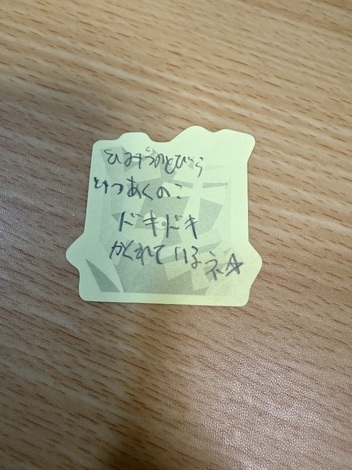 ひみづのとびら
あくのこ
ドキドキ
かくれている ネ☆